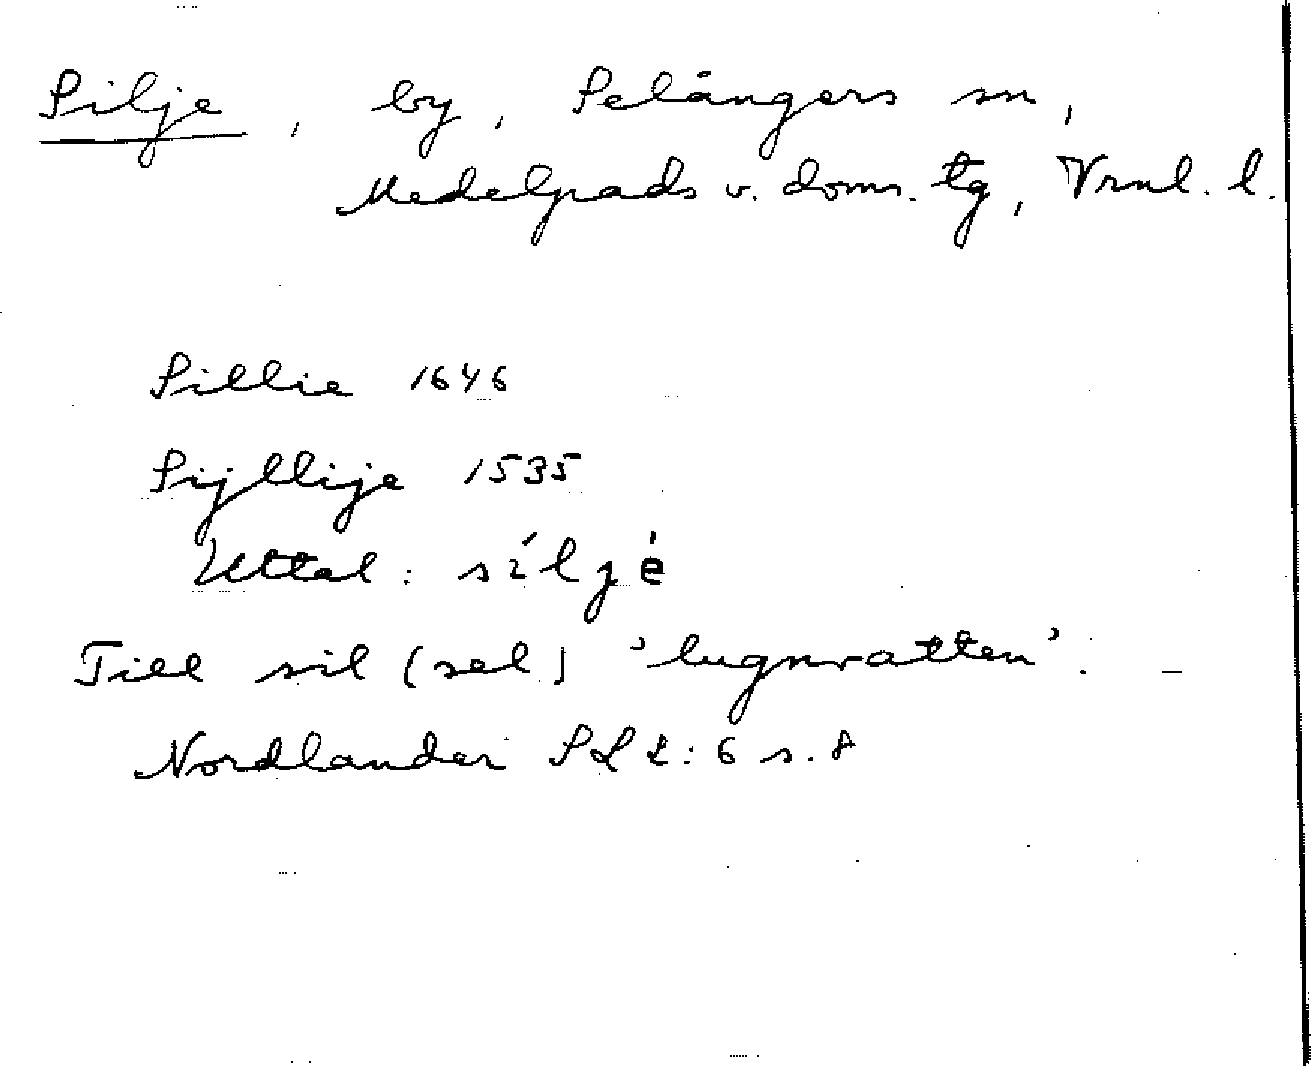 Silje, by, Selångers sn,
Medelpads v. doms. tg, Vrnl. l.
Sillie 1646
Sijllije 1535
Uttal: síljè
Till sil (sel) 'lugnvatten'. –
Nordlander SL 2:6 s. 8